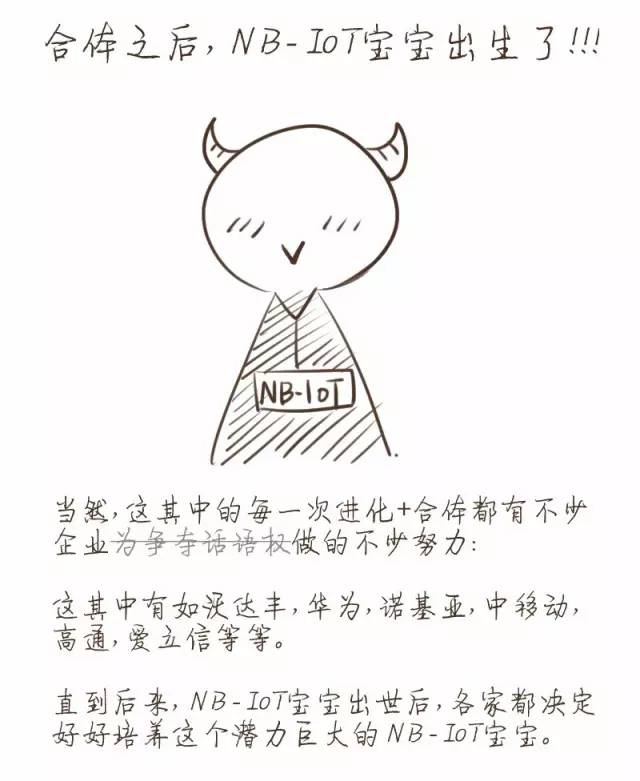 合体之后,NB-IoT宝宝出生了!!!
NB-IoT
当然,这其中的每一次进化+合体都有不少
企业为争夺话语权做的不少努力:
这其中有如沃达丰,华为,诺基亚,中移动,
高通,爱立信等等。
直到后来,NB-IoT宝宝出世后,各家都决定
好好培养这个潜力巨大的NB-IoT宝宝。